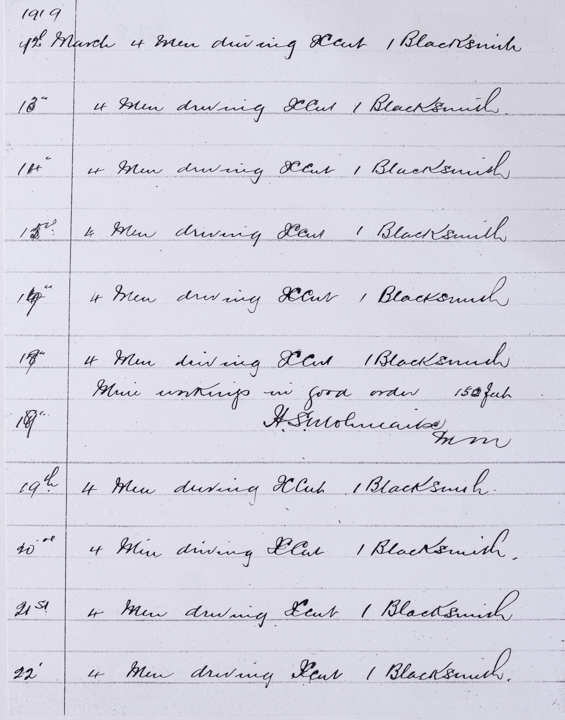 1919
12th March 4 Men driving XCut 1 Blacksmith
13" 4 Men driving XCut 1 Blacksmith.
14" 4 Men driving XCut 1 Blacksmith
4 Men driving XCut 1 Blacksmith
4 Men driving XCut 1 Blacksmith
4 Men driving XCut 1 Blacksmith
Mine workings in good order 150 feet
19th 4 Men driving XCut 1 Blacksmith.
20 4 Men driving XCut 1 Blacksmith.
21st 4 Men driving Xcut 1 Blacksmith
22 4 Men driving Xcut 1 Blacksmith.